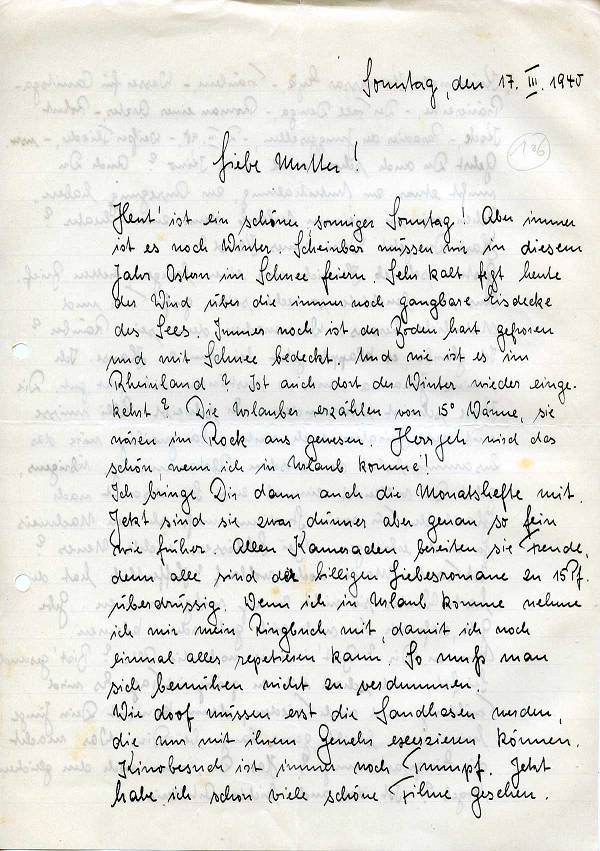 Sonntag, den 17. III. 1940
126
Liebe Mutter!
Heut' ist ein schöner, sonniger Sonntag! Aber immer
ist es noch Winter. Scheinbar müssen wir in diesem
Jahr Ostern im Schnee feiern. Sehr kalt fegt heute
der Wind über die immer noch gangbare Eisdecke
des Sees. Immer noch ist der Boden hart gefroren
und mit Schnee bedeckt. Und wie ist es im
Rheinland? Ist auch dort der Winter wieder einge-
kehrt? Die Urlauber erzählen von 15° Wärme, sie
wären im Rock aus gewesen. Herrgeh wird das
schön, wenn ich in Urlaub komme!
Ich bringe Dir dann auch die Monatshefte mit.
Jetzt sind sie zwar dünner aber genau so fein
wie früher. Allen Kameraden bereiten sie Freude,
denn alle sind der billigen Liebesromane zu 15 Pf.
überdrüssig. Wenn ich in Urlaub komme nehme
ich mir mein Ringbuch mit, damit ich noch
einmal alles repetieren kann. So muß man
sich bemühen nicht zu verdummen.
Wie doof müssen erst die Sandhasen werden,
die nur mit ihrem Gewehr exerzieren können.
Kinobesuch ist immer noch Trumpf. Jetzt
habe ich schon viele schöne Filme gesehen.